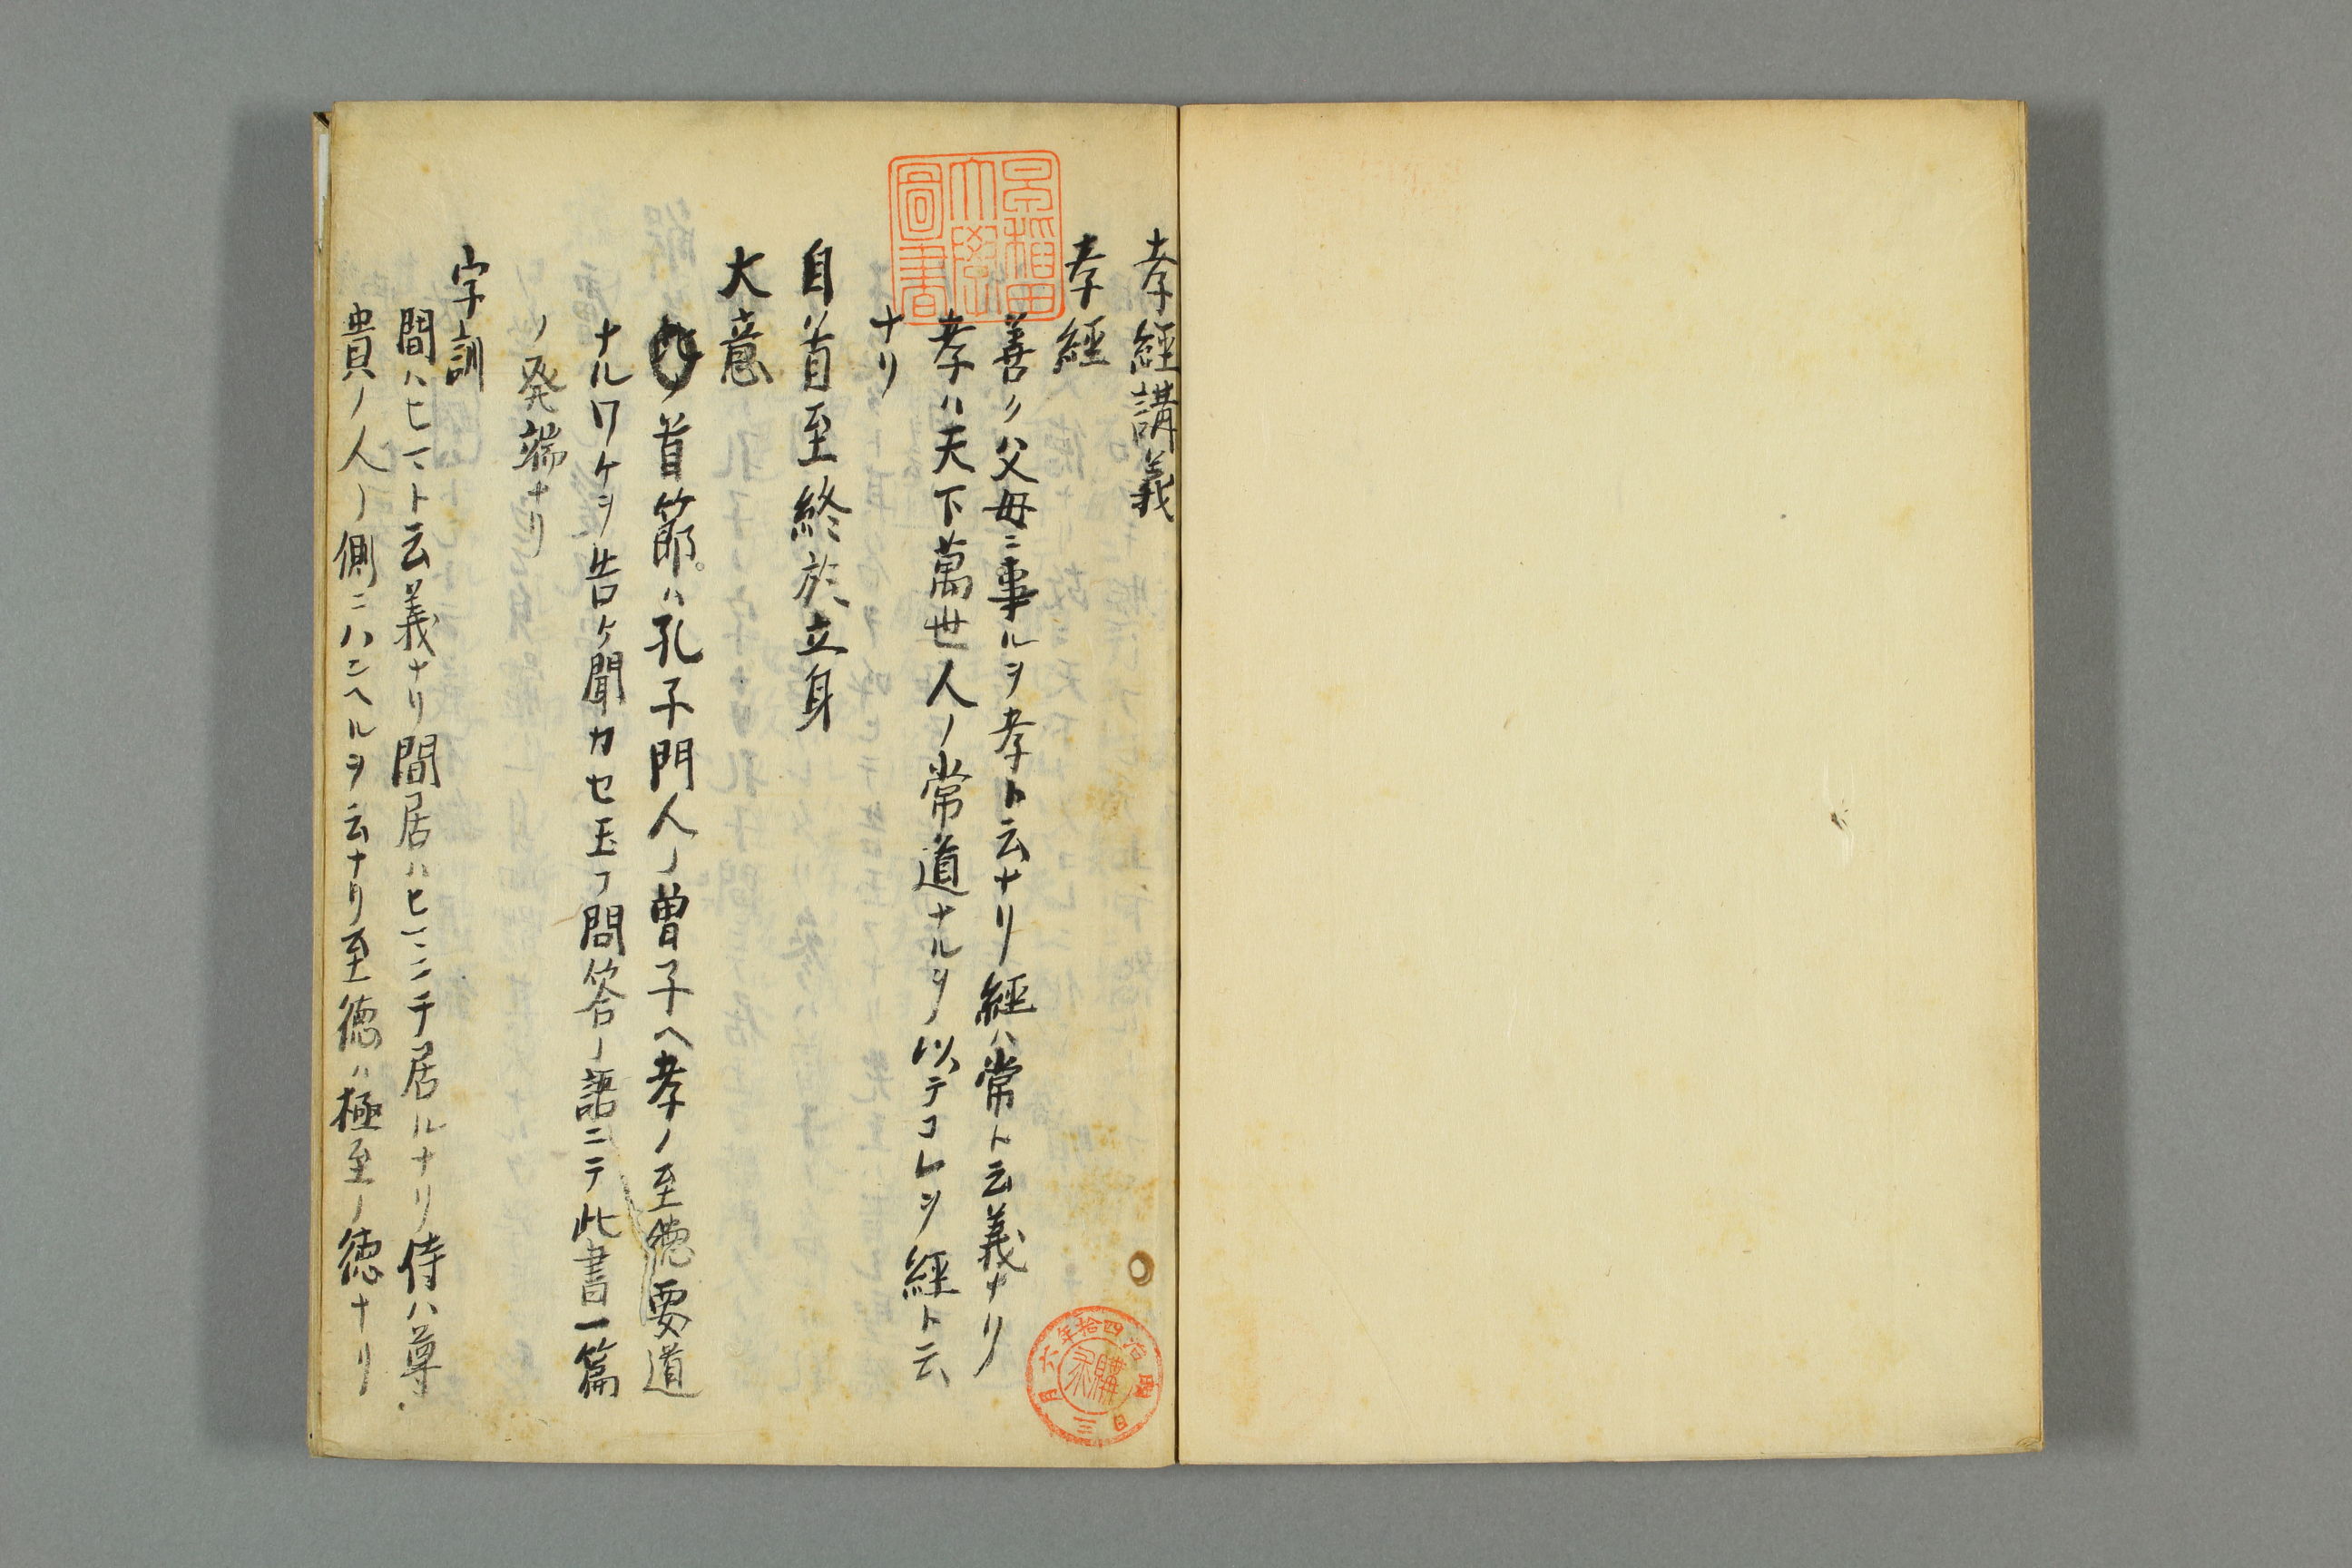 孝經講義
孝經
善ク父母ニ事ルヲ孝ト云ナリ經ハ常ト云義ナリ
孝ハ天下萬世人ノ常道ナルヲ以テコレヲ經ト云
ナリ
自首至終於立身
大意
ノ首節ハ孔子門人ノ曽子ヘ孝ノ至徳要道
ナルワケヲ告ケ聞カセ玉フ問答ノ語ニテ此書一篇
ノ発端ナリ
字訓
間ハヒマト云義ナリ間居ハヒマニチ居ルナリ侍ハ尊
貴ノ人ノ側ニハンヘルヲ云ナリ至徳ハ極至ノ徳ナリ
早稲田大學圖書
明治四拾年六月三日
購求